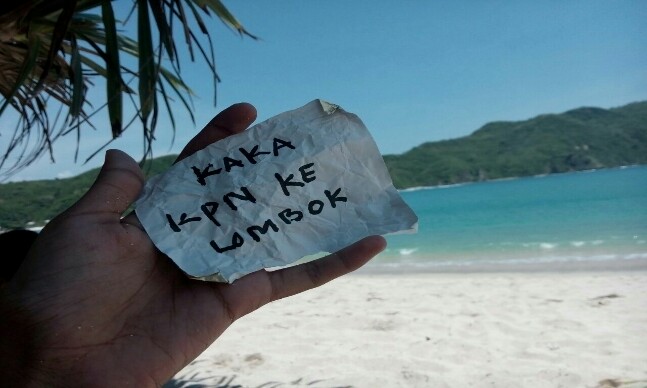 KAKA
KPN KE
LOMBOK